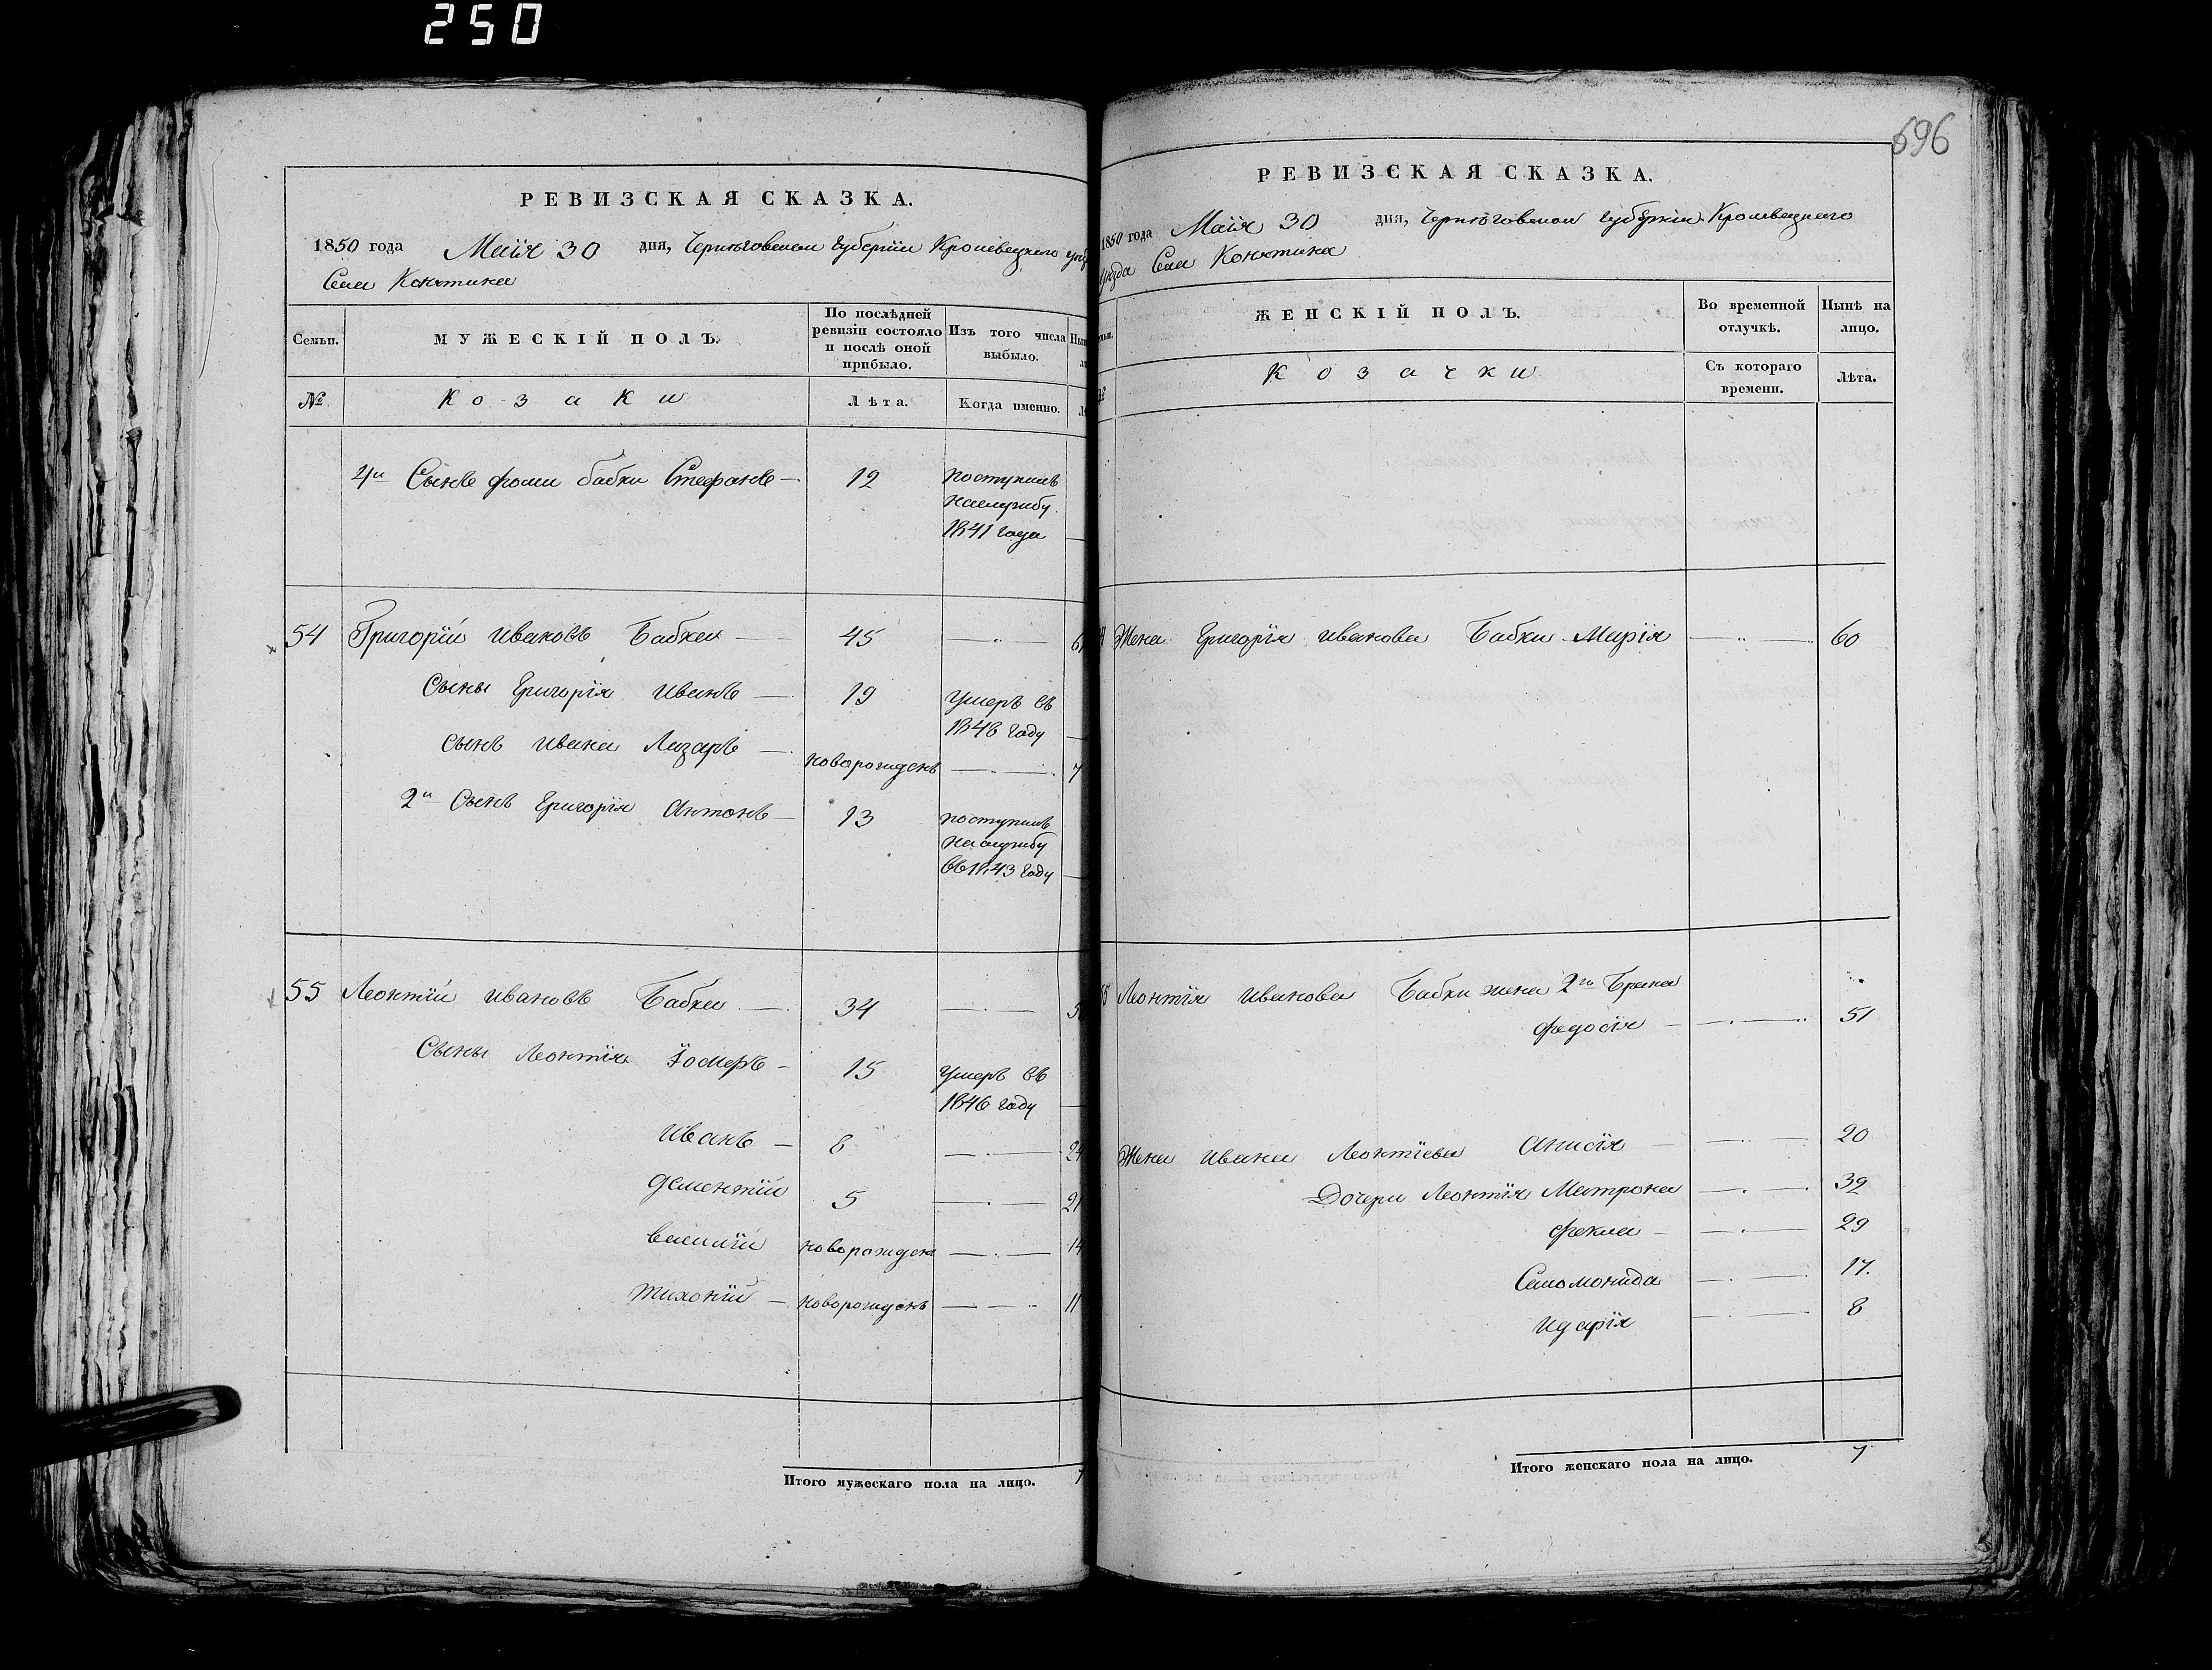 250
РЕВИЗСКАЯ СКАЗКА.
1850 года Маія 30 дня, Черниговской губерніи Кролевецкого
Села Конятина
Семьи. МУЖЕСКІЙ ПОЛЪ. По послѣдней ревизіи состояло и послѣ оной прибыло. Изъ того числа выбыло.
№ Козаки Лѣта. Когда именно.
4й Сынъ Фомы бабки Стефанъ — 12 поступилъ
наслужбу
1841 года
54 Григорій Ивановъ Бабка — 45
Сыны Григорія Иванъ — 19 Умеръ въ
1848 году
сынъ Ивана Лазаръ — новорожденъ 7
2й Сынъ Григорія Антонъ — 13 поступилъ
наслужбу
въ 1843 году
55 Леонтій Ивановъ Бабка — 34
Сыны Леонтія — 15 Умеръ въ
1846 году
Иванъ — 8 24
Дементій 5 21
Василій новорожденъ 14
Тихоній — новорожденъ 11
Итого мужескаго пола на лицо. 7
696
РЕВИЗСКАЯ СКАЗКА.
1850 года Маія 30 дня, Черниговской губерніи Кролевецкого
Уѣзда Села Конятина
ЖЕНСКІЙ ПОЛЪ. Во временной отлучкѣ. Нынѣ на лицо.
№ Козачки Съ котораго времени. Лѣта.
Жена Григорія Иванова Бабки Марія 60
55 Леонтія Иванова Бабки жена 2го Брака
Федосія — 51
Жена Ивана Леонтіева Анисія — 20
Дочери Леонтія Матрона 32
Фекла — 29
Соломонида 17.
Идарія 8
Итого женскаго пола на лицо. 7